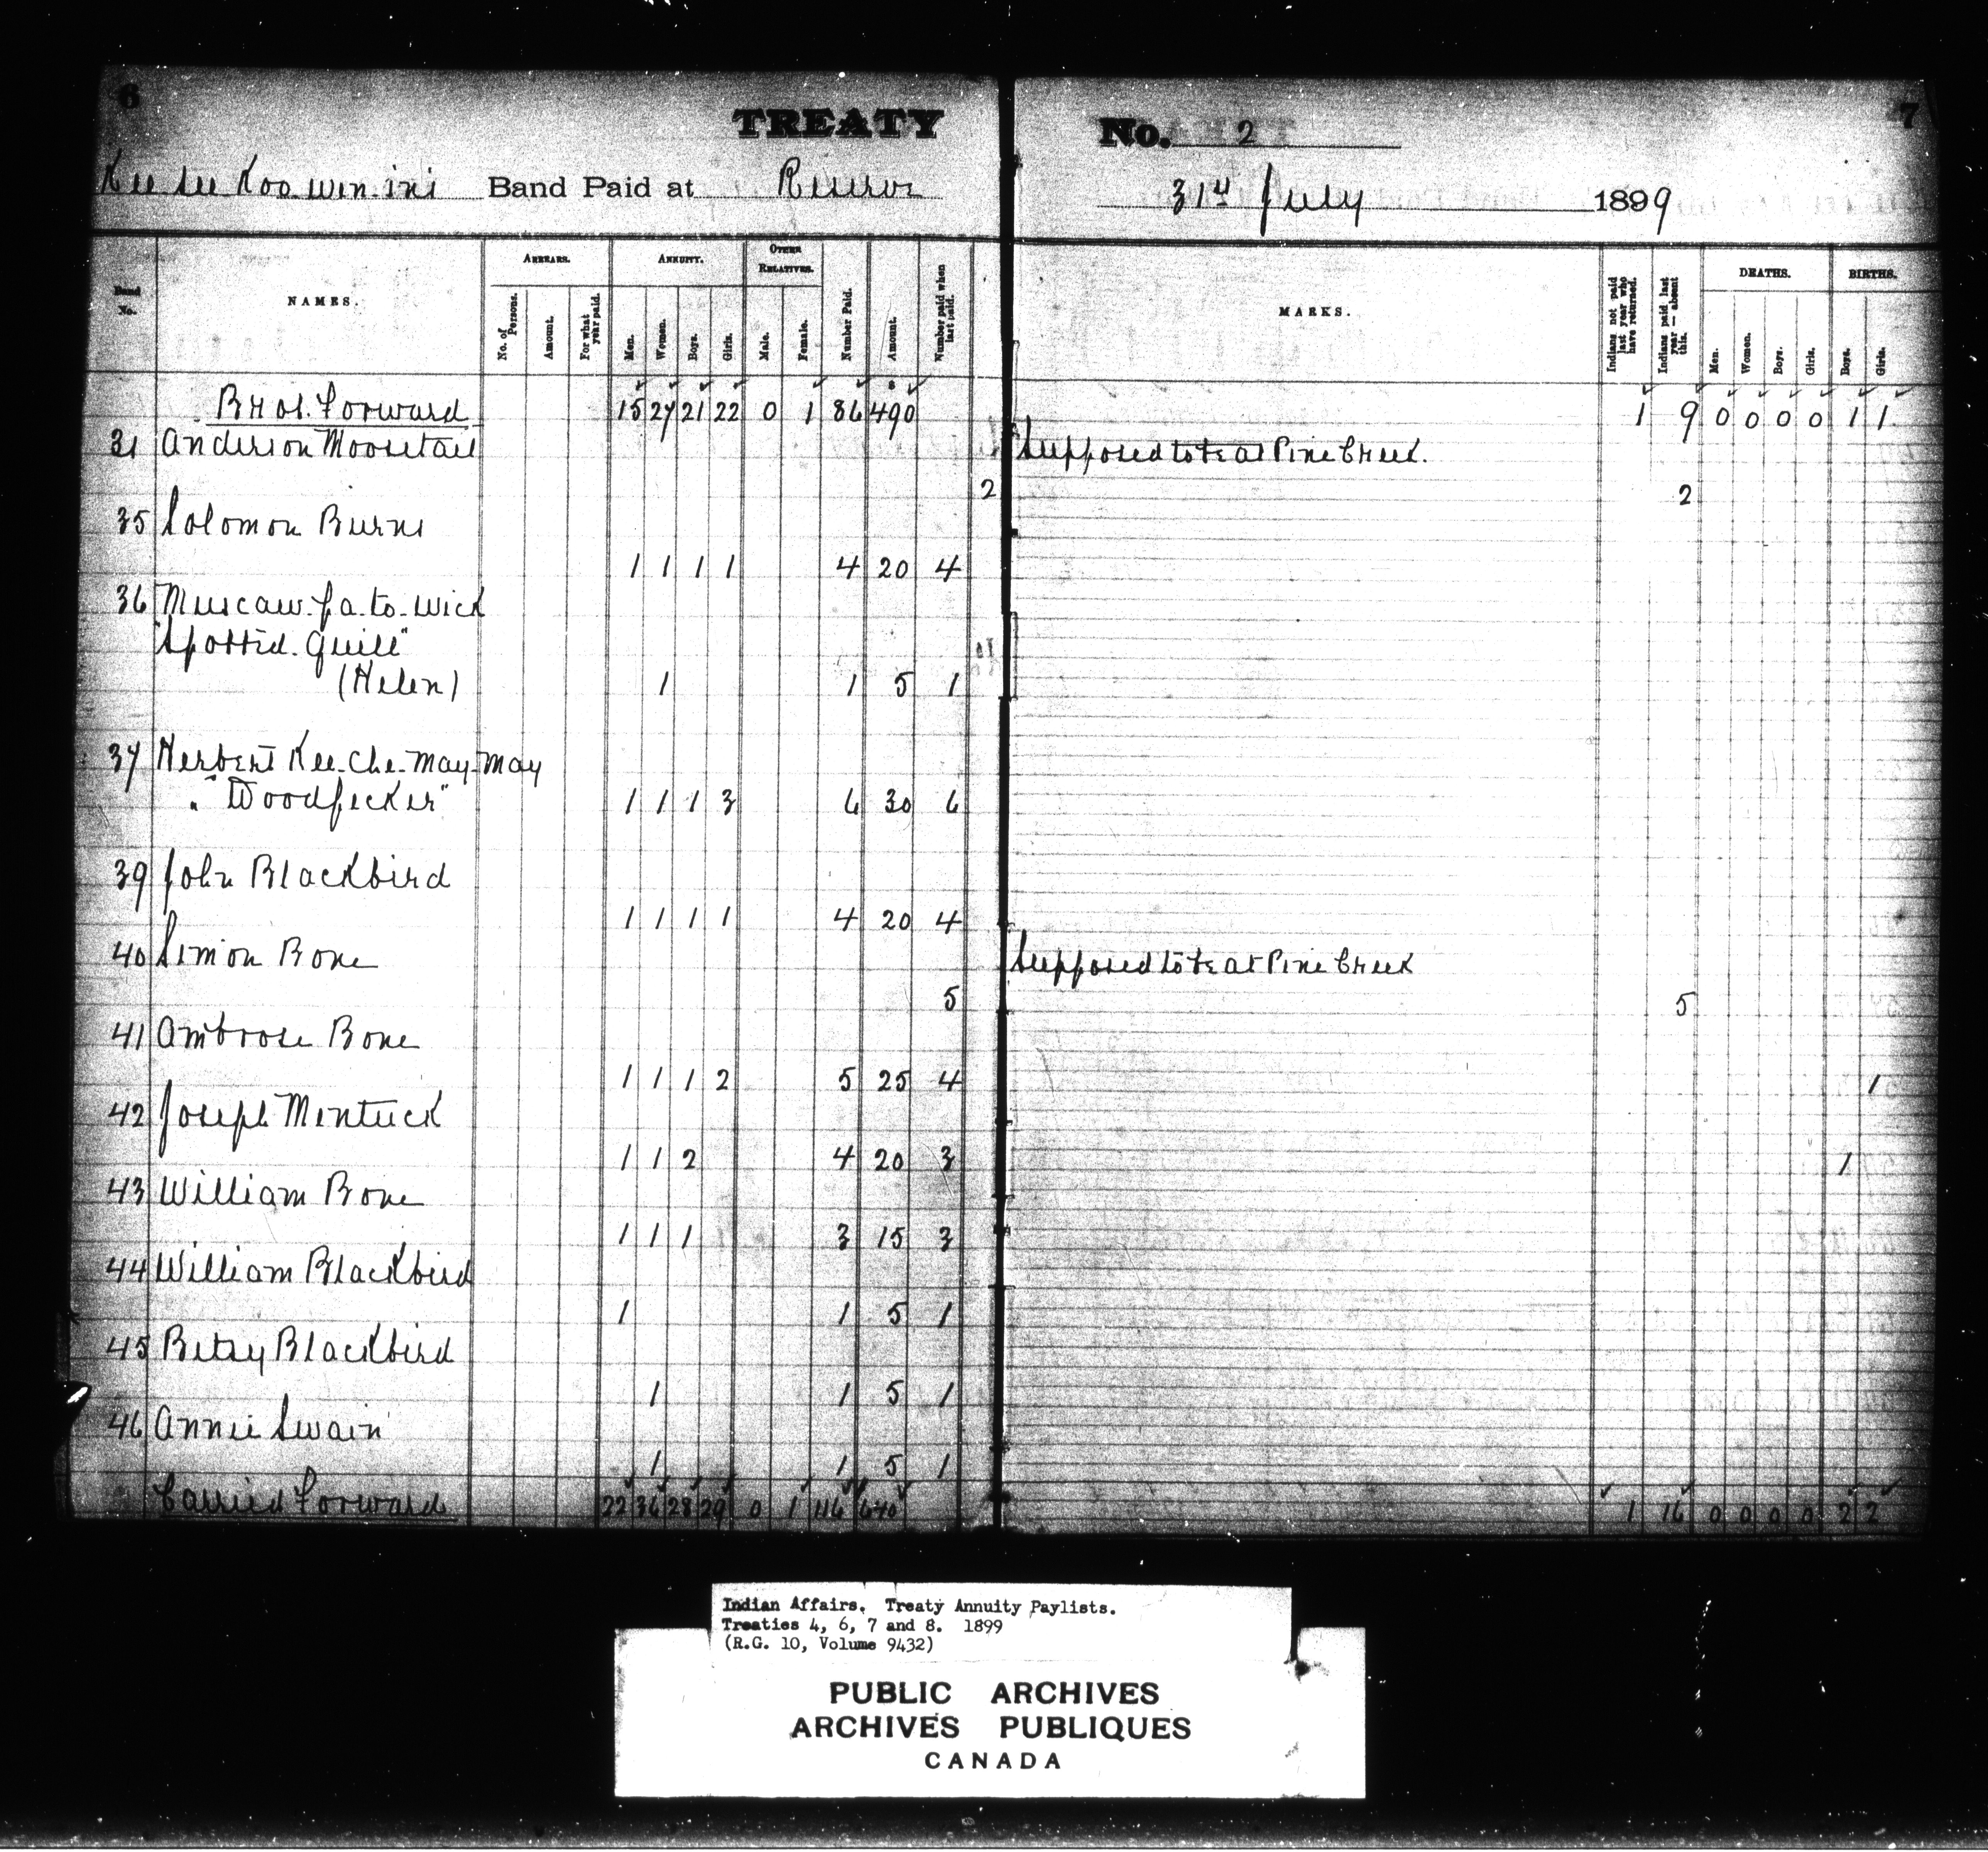 6
TREATY No. 2
7
Kee see Koo win ini Band Paid at Reserve 31st July 1899
Band No. NAMES. ARREARS. No. of Persons. Amount. For what year paid. ANNUITY. Men. Women. Boys. Girls. OTHER RELATIVES. Male. Female. Number Paid. Amount. Number paid when last paid. MARKS. Indians not paid last year who have returned. Indians paid last year — absent this. DEATHS. Men. Women. Boys. Girls. BIRTHS. Boys. Girls.
Brot. Forward 15 27 21 22 0 1 86 490 1 9 0 0 0 0 1 1
31 Anderson Moosetail Supposed to be at Pine Creek.
2 2
35 Solomon Burns
1 1 1 1 4 20 4
36 Muscaw-pa-to-wick
"Spotted-Quill"
(Helen) 1 1 5 1
37 Herbert Kee-che-may-may
"Woodpecker" 1 1 1 3 6 30 6
39 John Blackbird
1 1 1 1 4 20 4
40 Simon Bone Supposed to be at Pine Creek
5 5
41 Ambrose Bone
1 1 1 2 5 25 4 1
42 Joseph Mentuck
1 1 2 4 20 3 1
43 William Bone
1 1 1 3 15 3
44 William Blackbird
1 1 5 1
45 Betsy Blackbird
1 1 5 1
46 Annie Swain
1 1 5 1
Carried Forward 22 36 28 29 0 1 116 640 1 16 0 0 0 0 2 2
Indian Affairs. Treaty Annuity Paylists.
Treaties 4, 6, 7 and 8. 1899
(R.G. 10, Volume 9432)
PUBLIC ARCHIVES
ARCHIVES PUBLIQUES
CANADA